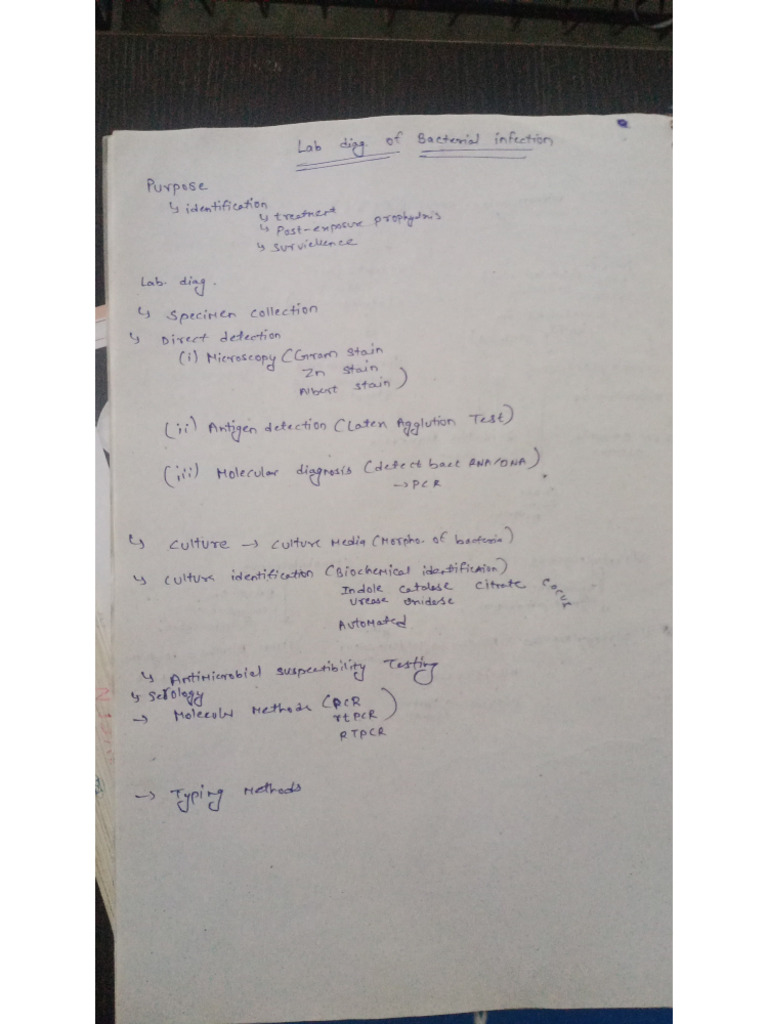 Lab diag. of Bacterial infection
Purpose
↳ identification
↳ treatment
↳ Post-exposure prophylaxis
↳ surviellence
Lab. diag.
↳ Specimen collection
↳ Direct detection
(i) Microscopy (Gram stain
Zn stain
Albert stain)
(ii) Antigen detection (Latex Agglution Test)
(iii) Molecular diagnosis (detect bact RNA/DNA)
→ PCR
↳ culture → culture Media (Morpho. of bacteria)
↳ culture identification (Biochemical identification)
Indole catalase citrate cocus
urease oxidase
Automated
↳ Antimicrobial suspectibility Testing
↳ Serology
→ Molecular Methods (PCR
rtPCR)
RTPCR
→ Typing Methods